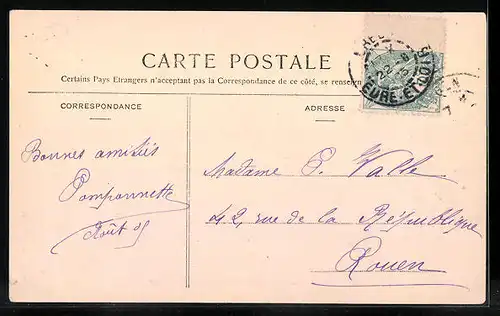 CARTE POSTALE
Certains Pays Etrangers n'acceptant pas la Correspondance de ce côté, se renseign
CORRESPONDANCE
ADRESSE
Bonnes amitiés
Pomponnette
Août
Madame P. Valle
42, rue de la République
Rouen
EURE-ET-LOIR